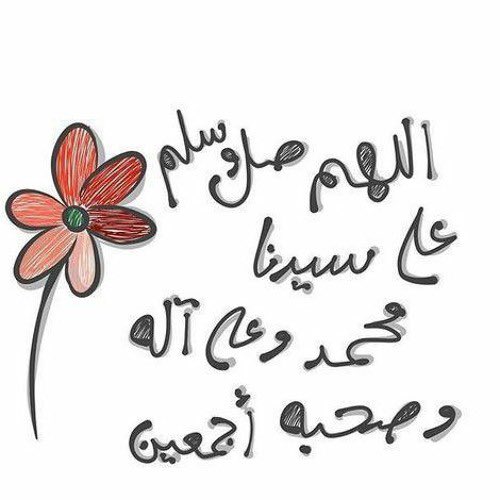 اللهم صل وسلم
على سيدنا
محمد وعلى آله
وصحبه أجمعين